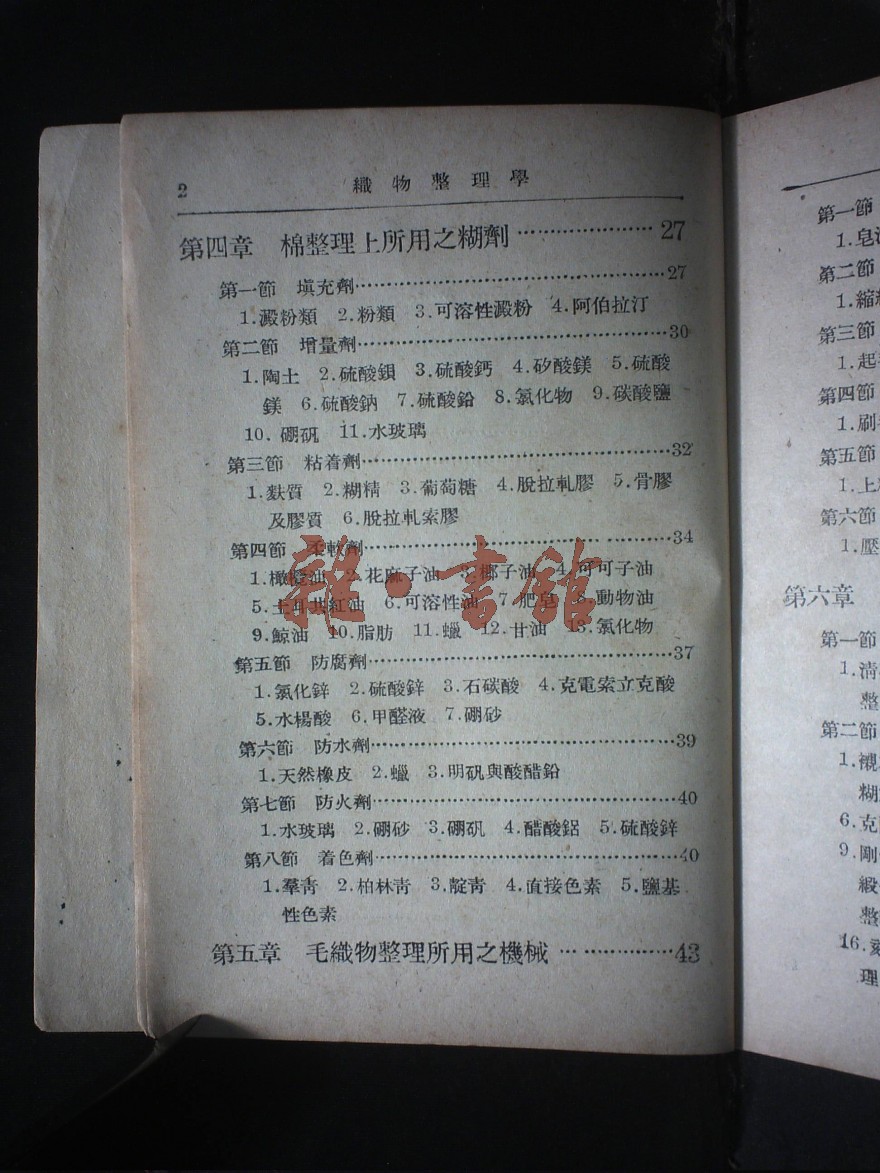 2 織物整理學
第四章 棉整理上所用之糊劑…………………27
第一節 填充劑……………………………………27
1.澱粉類 2.粉類 3.可溶性澱粉 4.阿伯拉汀
第二節 增量劑……………………………………30
1.陶土 2.硫酸鋇 3.硫酸鈣 4.矽酸鎂 5.硫酸
鎂 6.硫酸鈉 7.硫酸鉛 8.氯化物 9.碳酸鹽
10.硼矾 11.水玻璃
第三節 粘着劑……………………………………32
1.麩質 2.糊精 3.葡萄糖 4.脫拉軋膠 5.骨膠
及膠質 6.脫拉軋索膠
第四節 柔軟劑……………………………………34
1.橄欖油 2.花麻子油 3.椰子油 4.可可子油
5.土耳其紅油 6.可溶性油 7.肥皂 8.動物油
9.鯨油 10.脂肪 11.蠟 12.甘油 13.氯化物
第五節 防腐劑……………………………………37
1.氯化鋅 2.硫酸鋅 3.石碳酸 4.克電索立克酸
5.水楊酸 6.甲醛液 7.硼砂
第六節 防水劑……………………………………39
1.天然橡皮 2.蠟 3.明矾與酸醋鉛
第七節 防火劑……………………………………40
1.水玻璃 2.硼砂 3.硼矾 4.醋酸鋁 5.硫酸鋅
第八節 着色劑……………………………………40
1.羣靑 2.柏林靑 3.靛靑 4.直接色素 5.鹽基
性色素
第五章 毛織物整理所用之機械……………43
雜·書館
第一節
1.皂
第二節
1.縮
第三節
1.起
第四節
1.刷
第五節
1.上
第六節
1.壓
第六章
第一節
1.清
整
第二節
1.襯
糊
6.克
9.剛
緞
整
16.
理